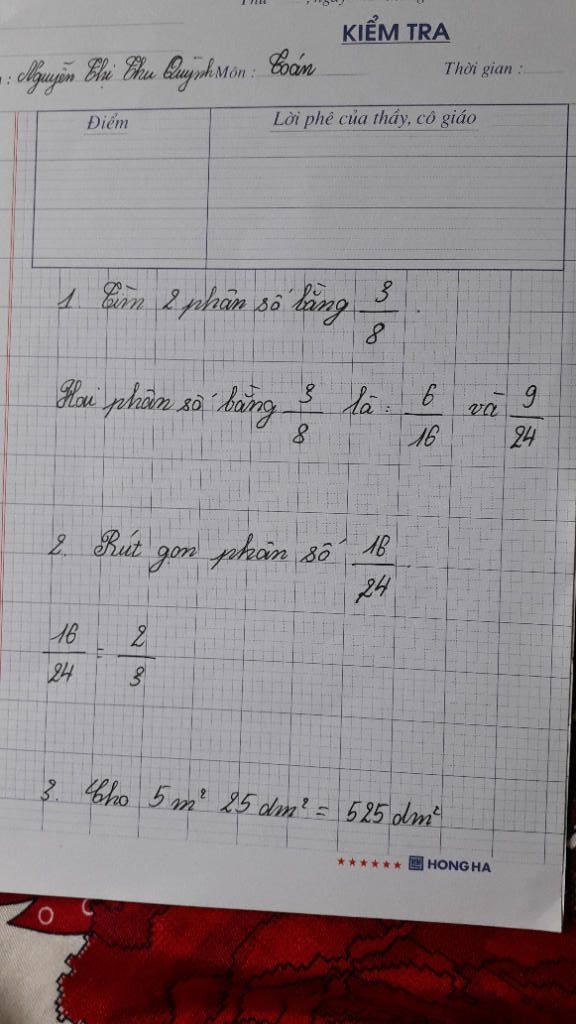 KIỂM TRA
: Nguyễn Thị Thu Quỳnh Môn : Toán Thời gian :
Điểm Lời phê của thầy, cô giáo
1. Tìm 2 phân số bằng 3/8.
Hai phân số bằng 3/8 là: 6/16 và 9/24
2. Rút gọn phân số 16/24
16/24 = 2/3
3. Cho 5m² 25dm² = 525dm²
HONG HA